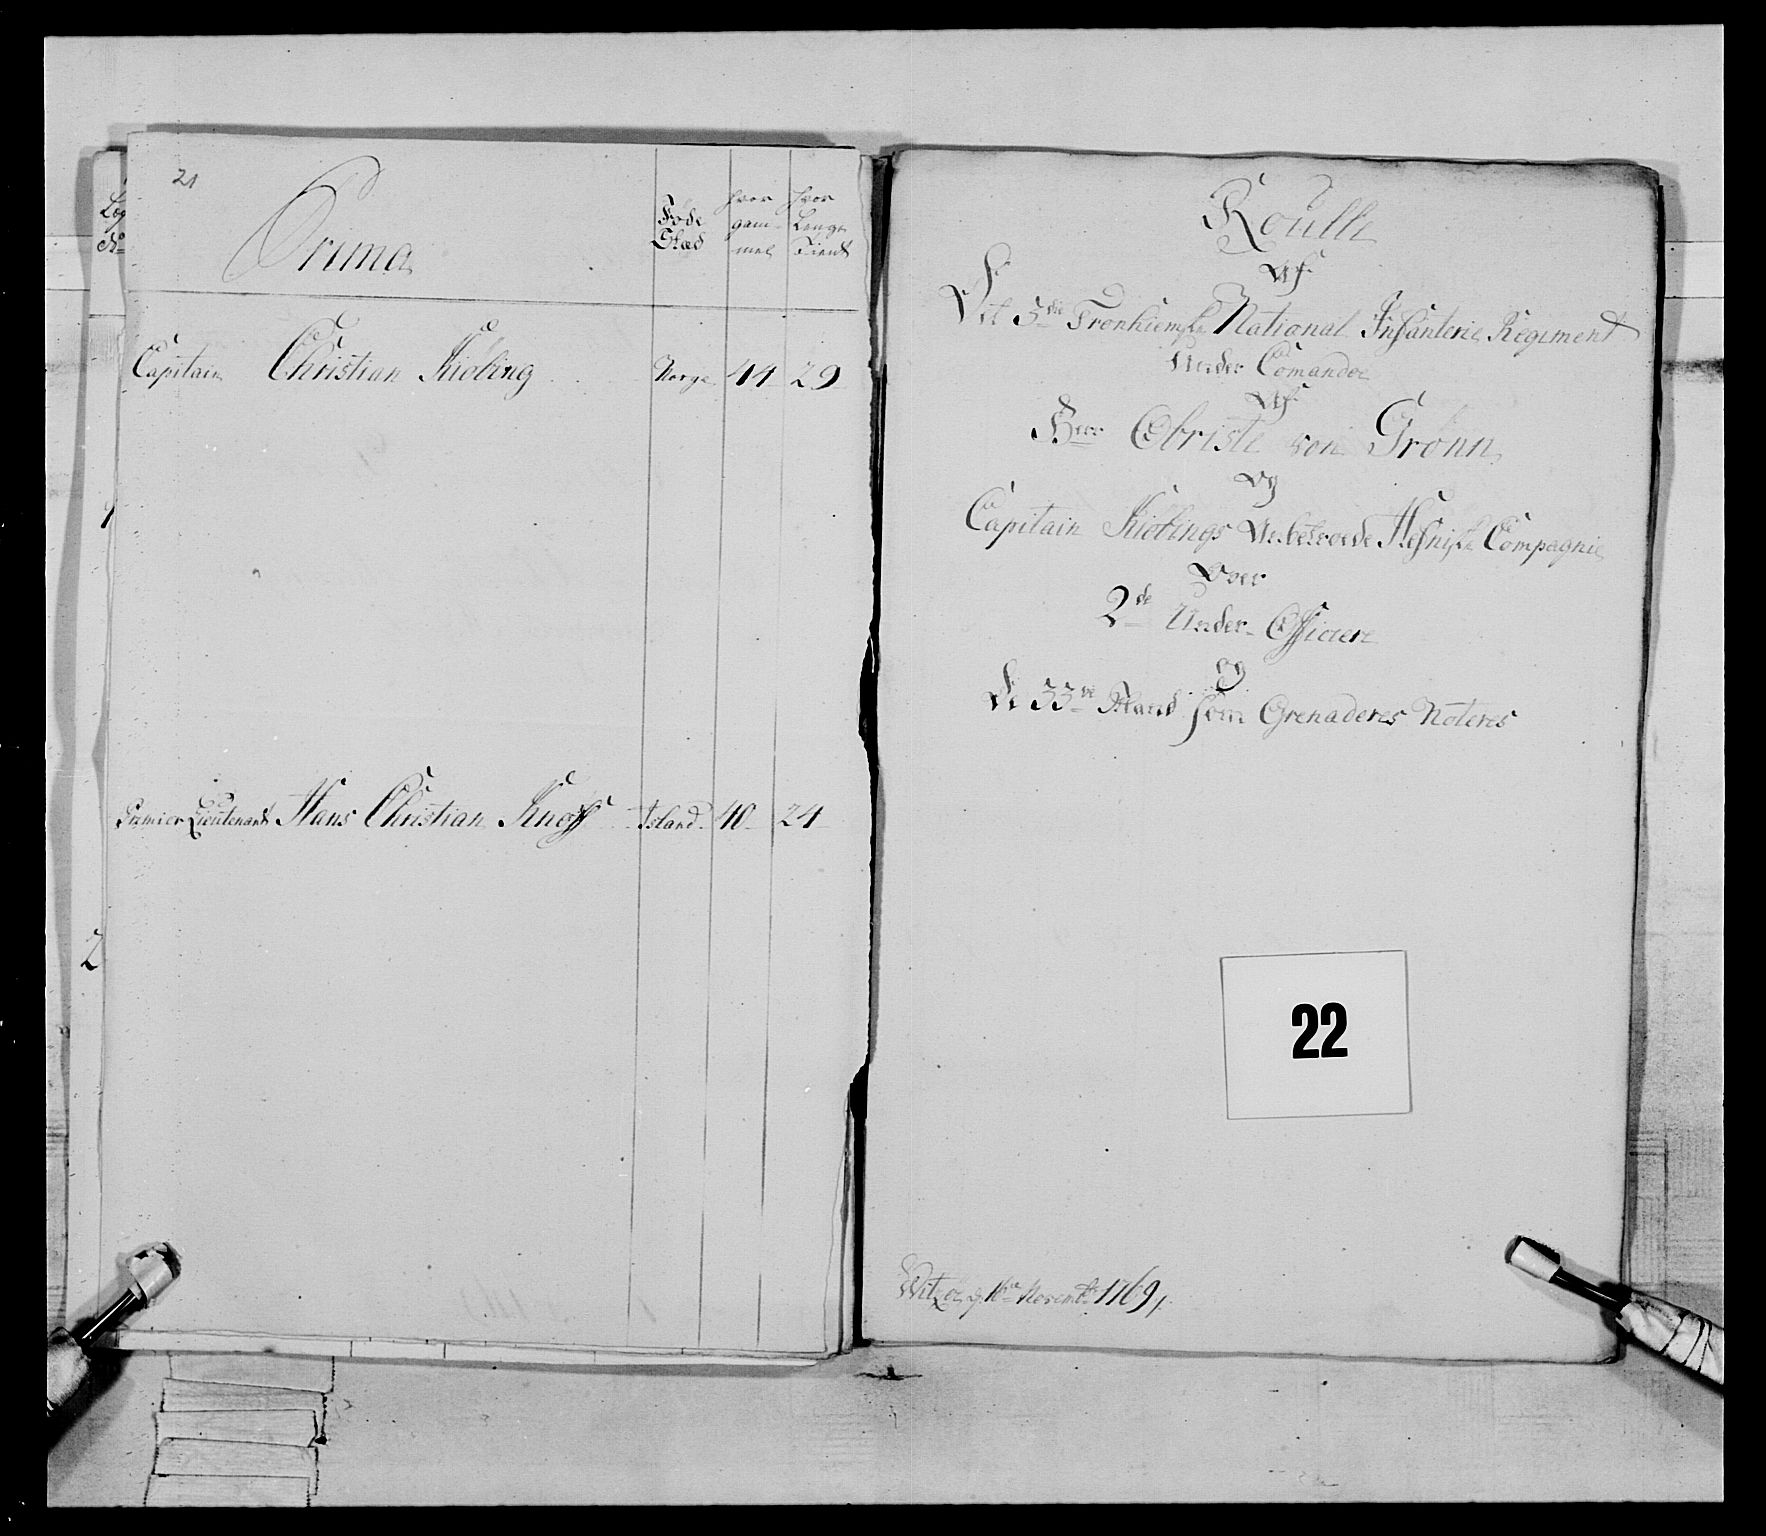 Læg
No
1
2
21
Prima
Føde Stæd
hvor gam- mel
hvor Længe Tient
Capitain Christian Kiöbing Norge 44 29
Premier Lieutenant Hans Christian Knoff Island 40 24
Roulle
Af
Det 3die Tronhiemske National Infanterie Regiment
Under Comandoe
Af
Herr Obriste von Grønn
og
Capitain Kiöbings Hefniske Compagnie
Over
2de Under Officiere
og
De 33ve Mand som Grenaderes Noteres
22
16de Novembr 1769